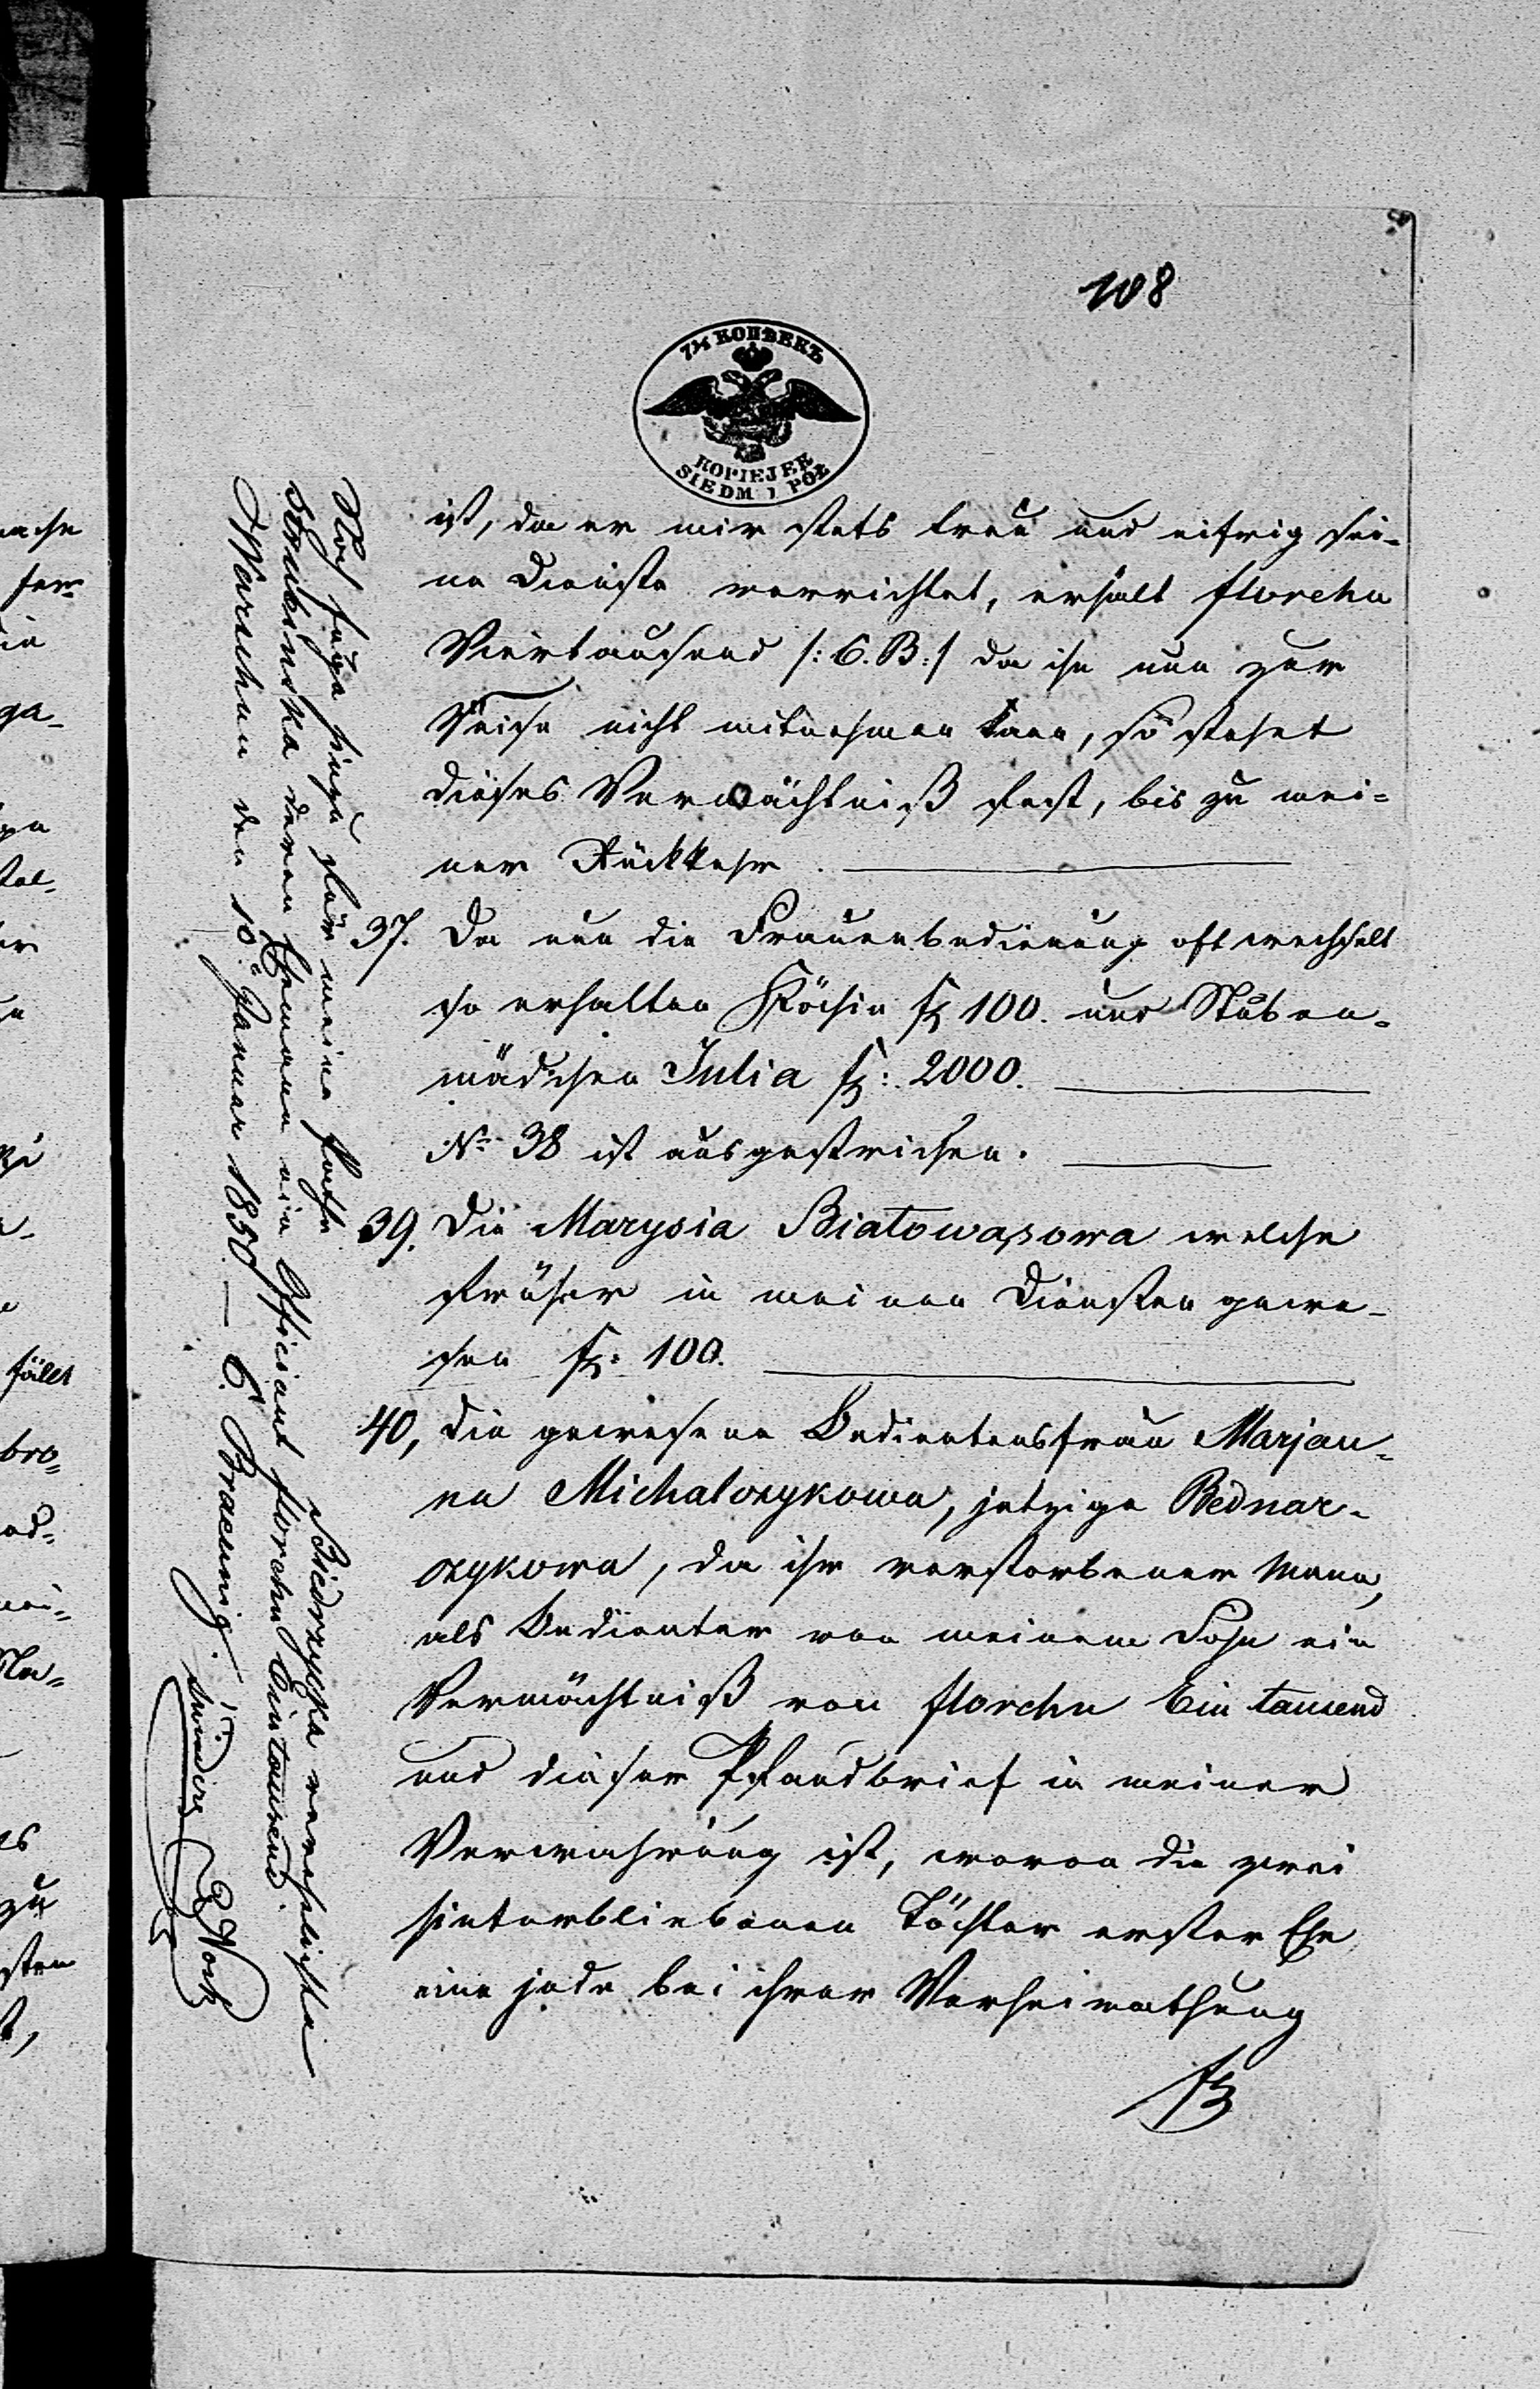 108
7½ КОПѢЕКЪ
KOPIEJEK
SIEDM I PÓŁ
ist, da er mir stets treu und eifrig sei-
ne Dienste verrichtet, erhält florehn
Viertausend /: C. B :/ da ihn nun zur
Reise nicht mitnehmen kann, so stehet
dieses Vermächtniß fest, bis zu mei-
ner Rückkehr.
37. Da nun die Frauenbedienung oft wechselt
so erhalten Köchin f. 100. und Stuben-
mädchen Julia f: 2000.
No 38 ist ausgestrichen.
39. Die Marysia Białowąsowa welche
früher in meinen Diensten gewe-
sen f: 100.
40, die gewesene Bedientensfrau Marjan-
na Michalczykowa, jetzige Bednar-
czykowa, da ihr verstorbener Mann,
als Bedienter von meinem Sohn ein
Vermächtniß von florehn Ein tausend
und dieser Pfandbrief in meiner
Verwahrung ist, wovon die zwei
hinterbliebenen Töchter erster Ehe
eine jede bei ihrer Verheirathung
Noch füge hinzu für meine Pathe Biedrzycka verehelichte
Skubinska deren Ehmann ein Officiant florehn Eintausend.
Warschau den 10. Januar 1850. — C. Braeunig.